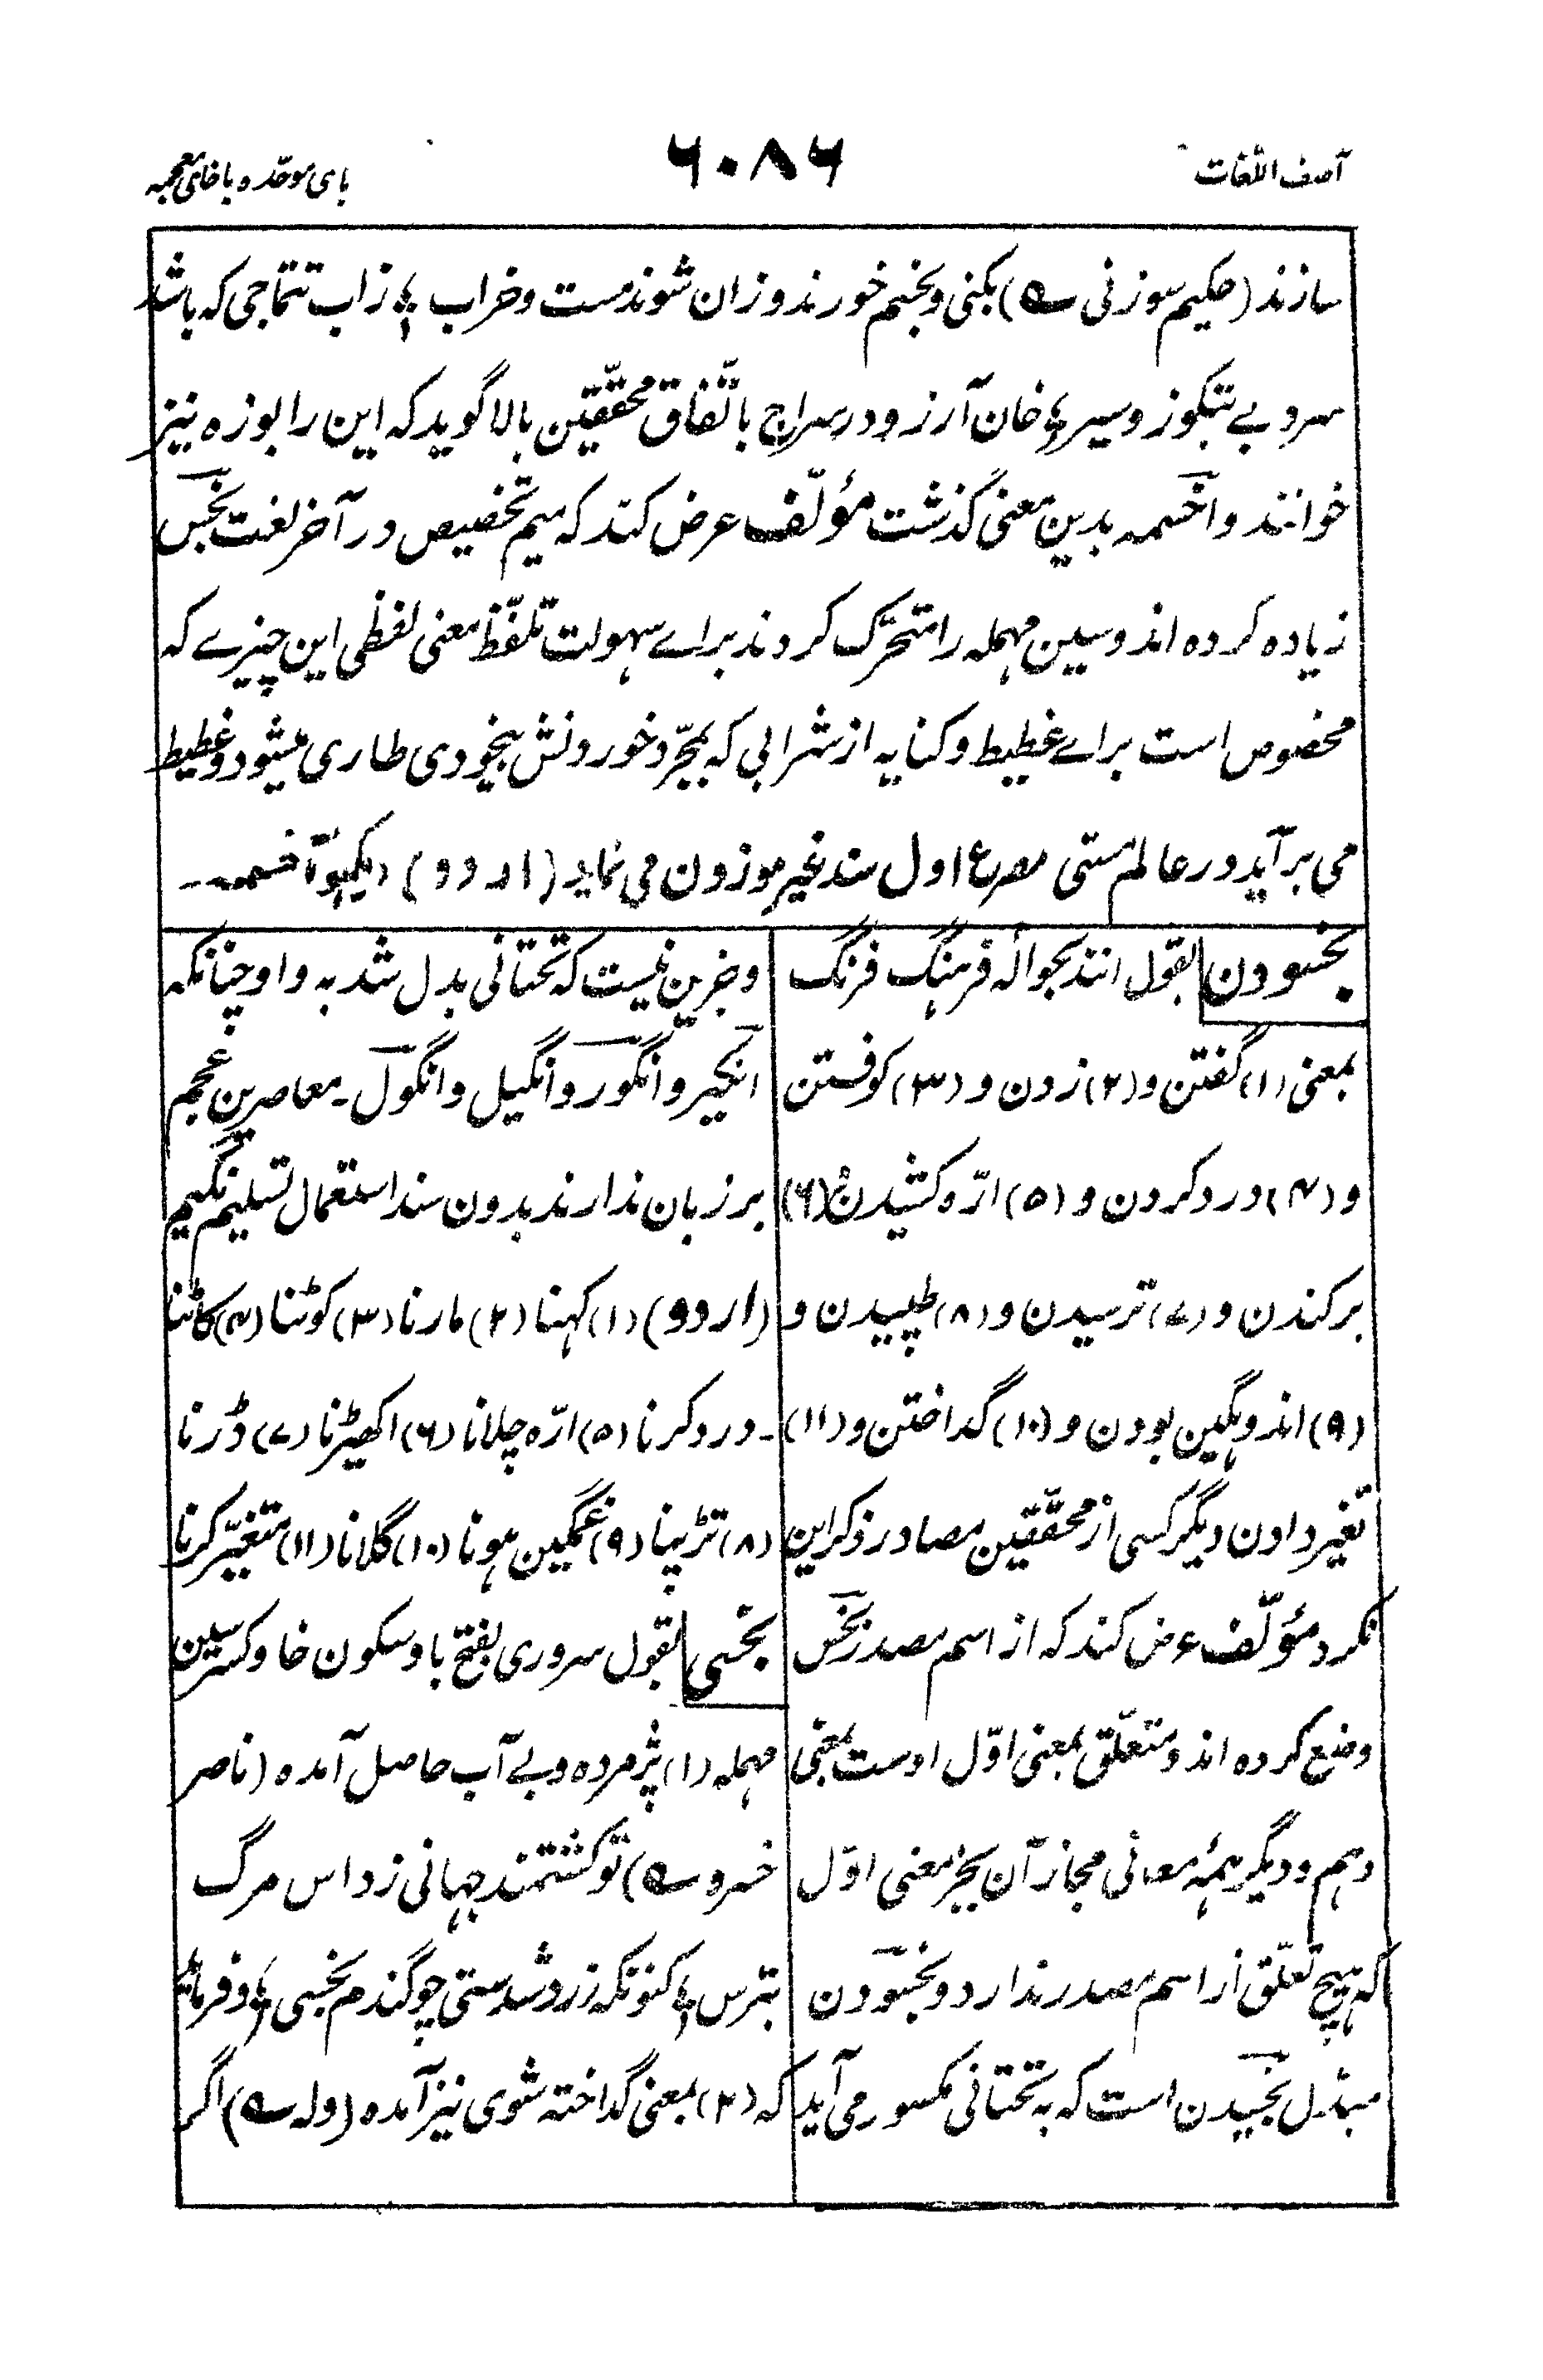 آصف اللغات
۶۰۸۶
بای موحّده باخای معجمہ
سازند (حکیم سوزنی ؎) بکنی و بخسم خورند و زان شوند مست و خراب ؛؛ زاب تتماجی کہ باشد
سرد بے تبکوز وسیر ؛؛ خان آرزو در سراج باتّفاق محقّقین بالا گوید کہ این را بوزہ نیز
خوانند و اخسمہ بدین معنی گذشت مؤلّف عرض کند کہ میم تخصیص در آخر لغت بخس
زیادہ کردہ اند و سین مہملہ را متحرّک کردند براے سہولت تلفّظ معنی لفظی این چیزے کہ
مخصوص است براے غطیط و کنایہ از شرابی کہ بمجرّد خوردنش بیخودی طاری میشود و غطیط
می برآید در عالم مستی مصرع اول سند غیر موزون می نماید (اردو) دیکہو آخسمہ ۔
بخسودن بقول انند بحوالہ فرہنگ فرنگ
بمعنی (۱) گفتن و (۲) زدن و (۳) کوفستن
و (۴) درد کردن و (۵) ارّہ کشیدن و (۶)
برکندن و (۷) ترسیدن و (۸) طپیدن و
(۹) اندوہگین بودن و (۱۰) گداختن و (۱۱)
تغیر دادن دیگر کسی از محقّقین مصادر ذکر این
نکرد مؤلّف عرض کند کہ از اسم مصدر بخس
وضع کردہ اند و متعلّق بمعنی اوّل اوست بمعنی
دہم و دیگر ہمہ معانی مجاز آن بجز معنی اوّل
کہ ہیچ تعلّق از اسم مصدر ندارد و بخسودن
مبدّل بخسیدن است کہ بہ تحتانی مکسور می آید
و جزین نیست کہ تحتانی بدل شد بہ واو چنانکہ
انگیر و انگور و انگیل و انگول ۔ معاصرین عجم
بر زبان ندارند بدون سند استعمال تسلیم نکنیم
(اردو) (۱) کہنا (۲) مارنا (۳) کوٹنا (۴) کاٹنا
۔ درد کرنا (۵) ارّہ چلانا (۶) اکھیڑنا (۷) ڈرنا
(۸) تڑپنا (۹) غمگین ہونا (۱۰) گلانا (۱۱) متغیّر کرنا
بخسی بقول سروری بفتح با و سکون خا و کسر سین
مہملہ (۱) پژمردہ و بے آب حاصل آمدہ (ناصر
خسرو ؎) تو کشتمند جہانی ز داس مرگ
بترس ؛؛ کنونکہ زرد شدستی چو گندم بخسی ؛؛ و فرماید
کہ (۲) بمعنی گداختہ شوی نیز آمدہ (ولہ ؎) اگر